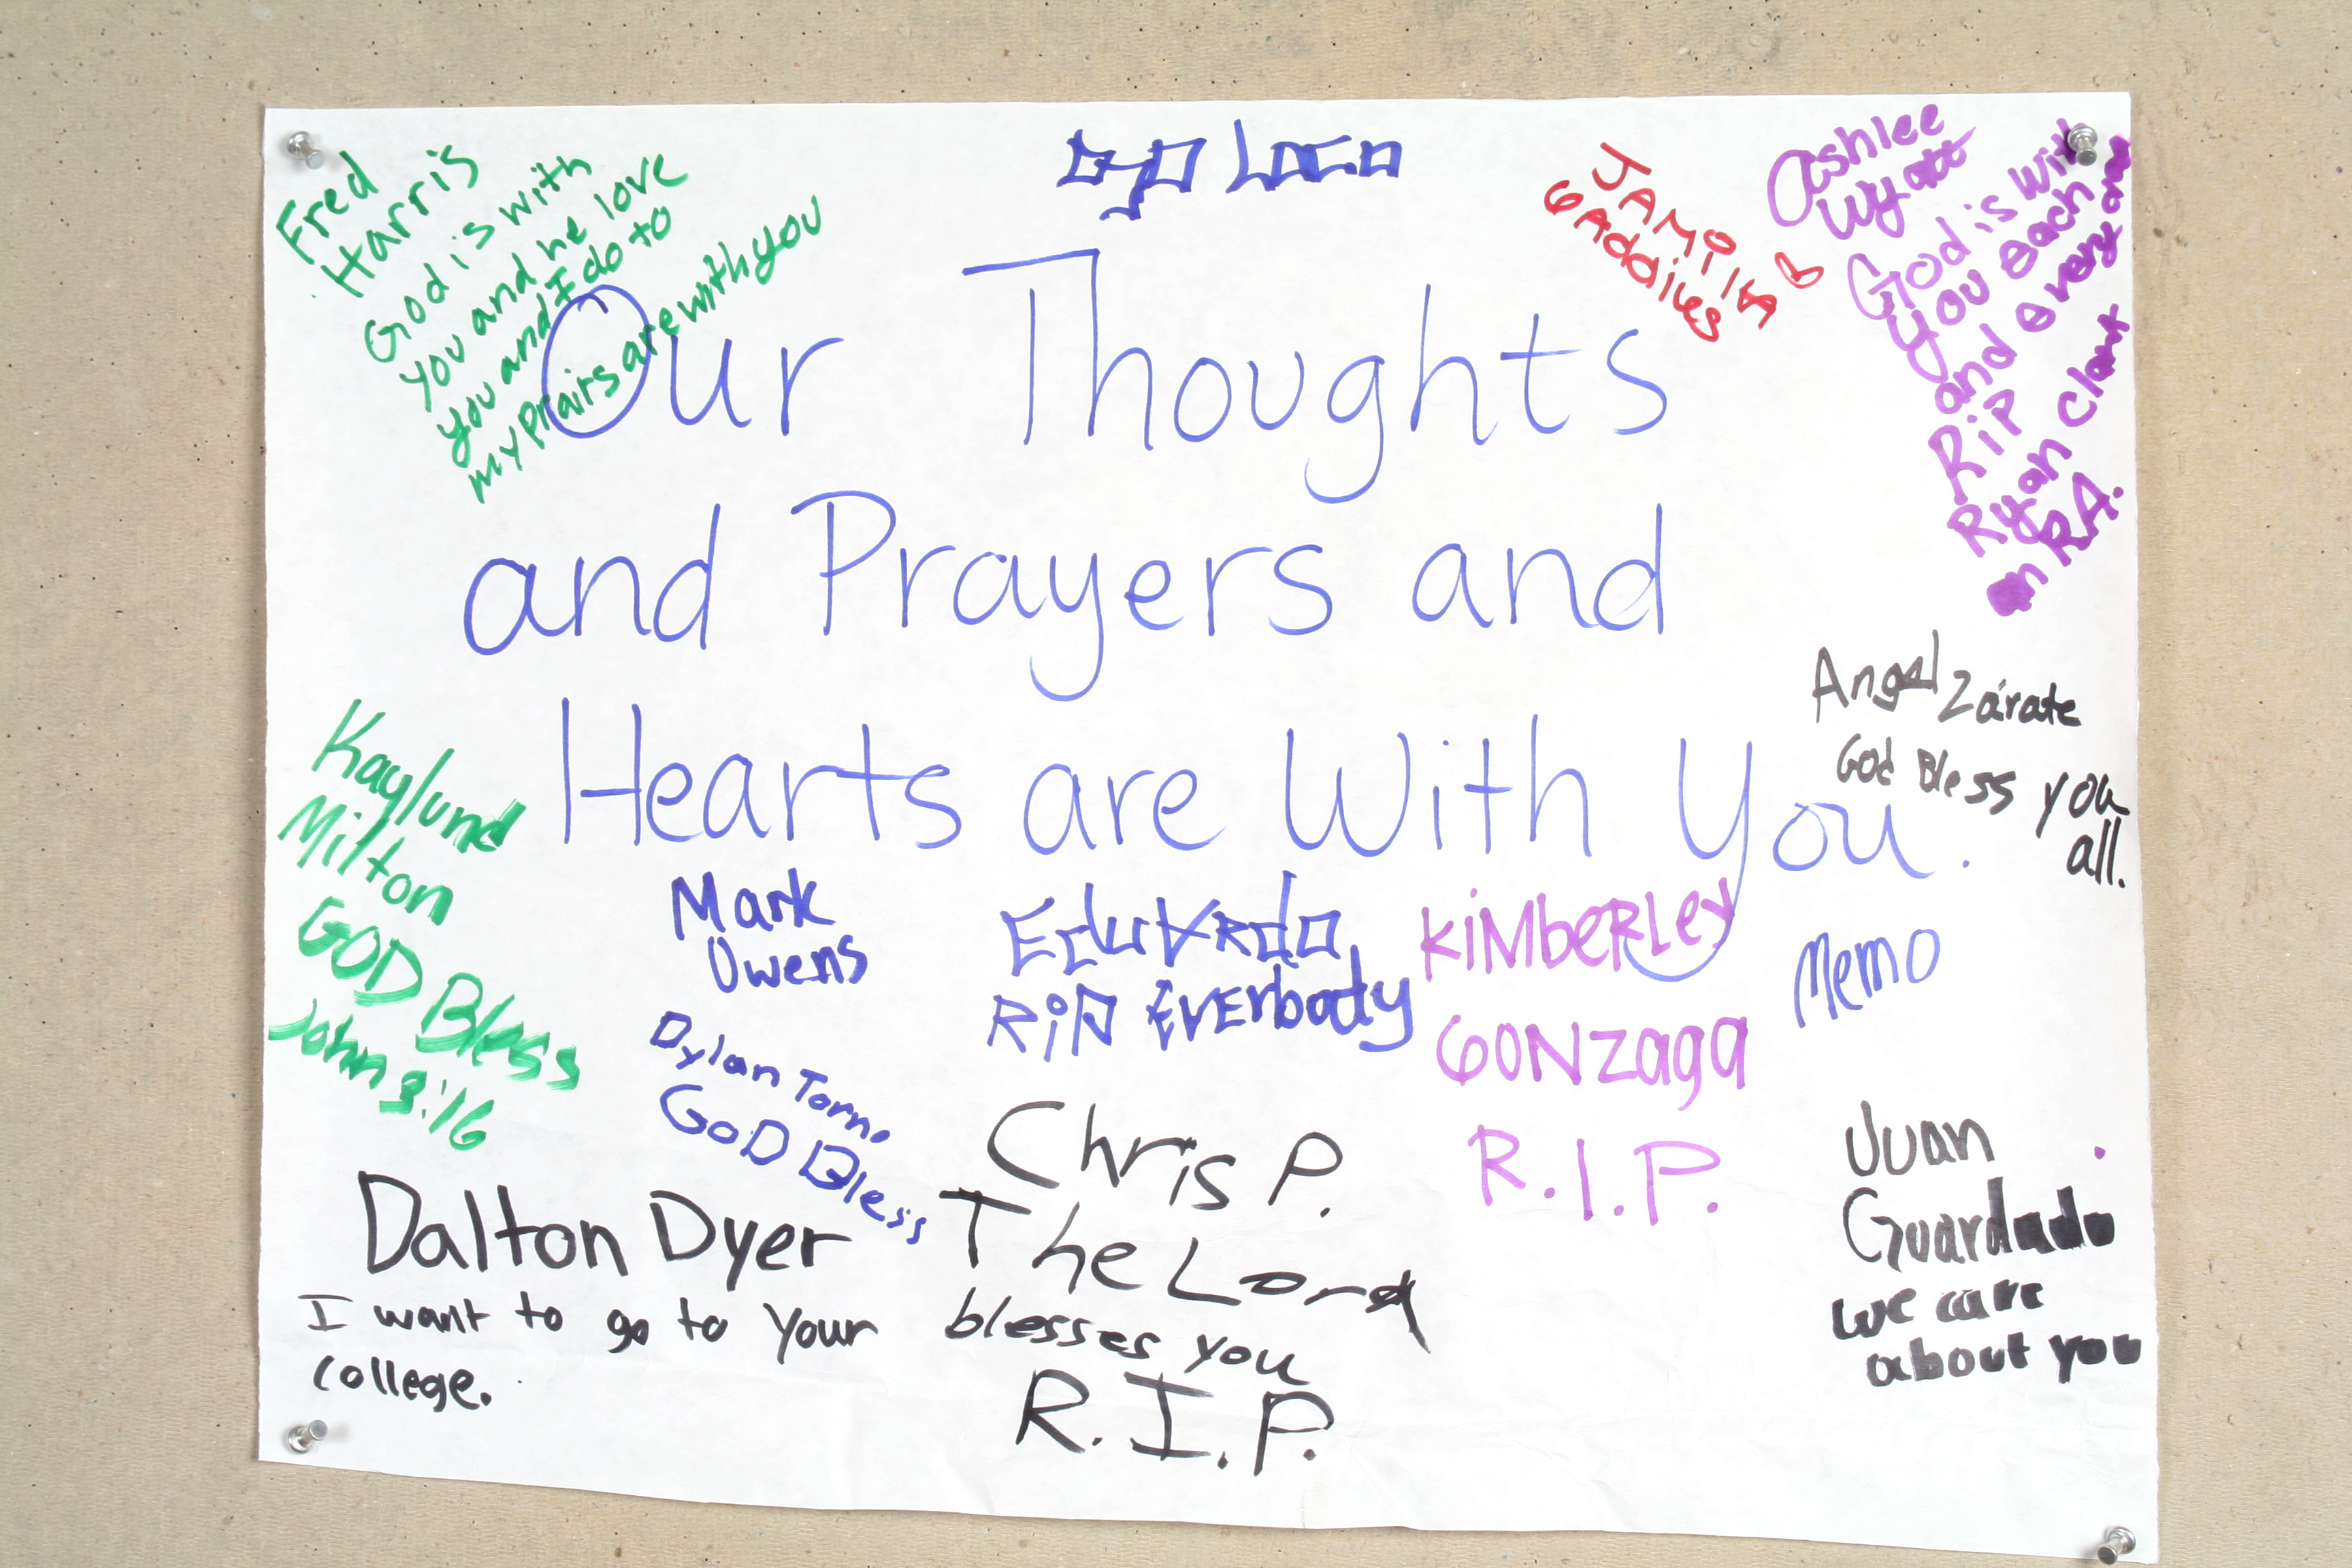 Fred
Harris
God is with
you and he love
you and I do to
my prairs are with you
Loco
JAMilA
GAddies
Ashlee
Wyatt
God is with
you each
and every one
RiP
Ryan Clark
an RA.
Our Thoughts
and Prayers and
Hearts are With You.
Angel Zárate
God Bless you
all.
Kaylund
Milton
GOD Bless
John 3:16
Mark
Owens
Dylan
GoD Bless
EduArdo
RiP EvErbody
KiMbeRLey
GONzaga
R.I.P.
Memo
Dalton Dyer
I want to go to your
college.
Chris P.
The Lord
blesses you
R.I.P.
Juan
Guardado
we care
about you